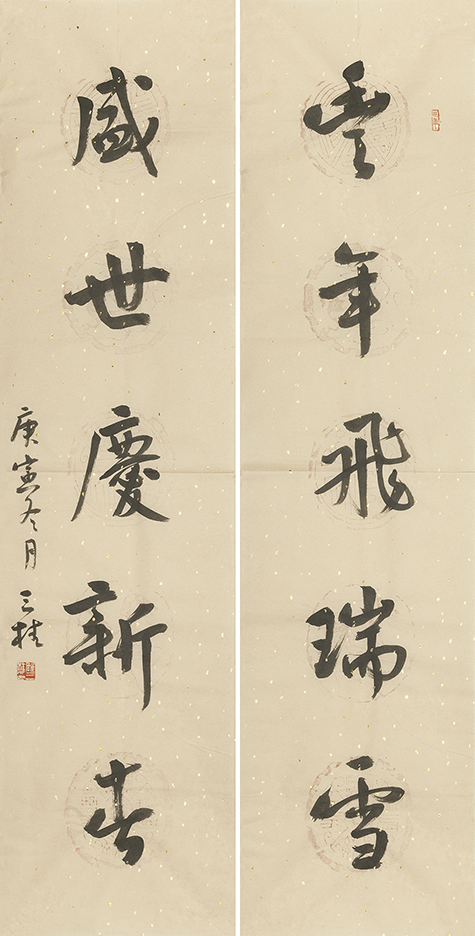 豐年飛瑞雪
盛世慶新春
庚寅冬月 三桂